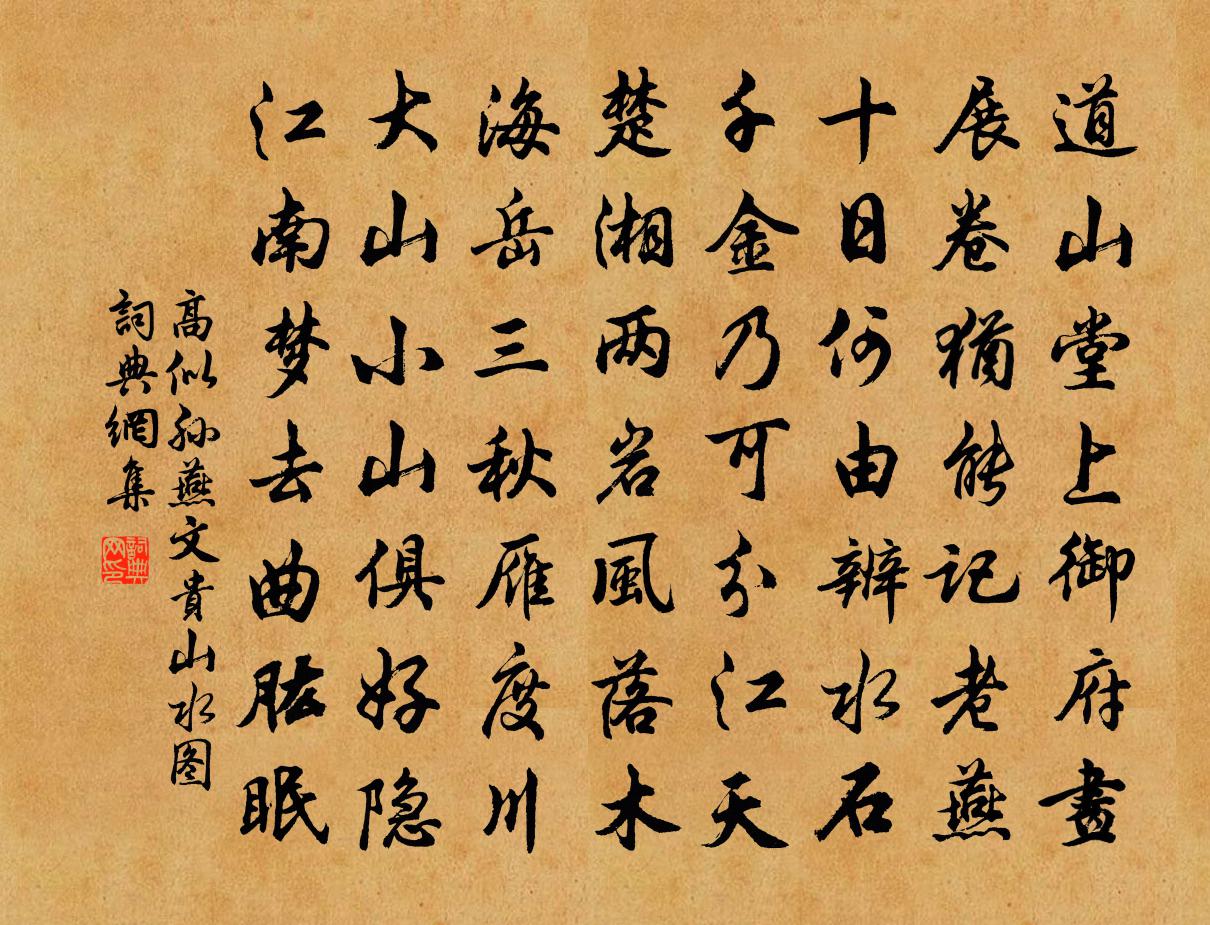 道山堂上御府畫
展卷猶能記老燕
十日何由辨水石
千金乃可分江天
楚湘两岩風落木
海岳三秋雁度川
大山小山俱好隐
江南梦去曲肱眠
高似孙燕文貴山水图
詞典網集
詞典网印